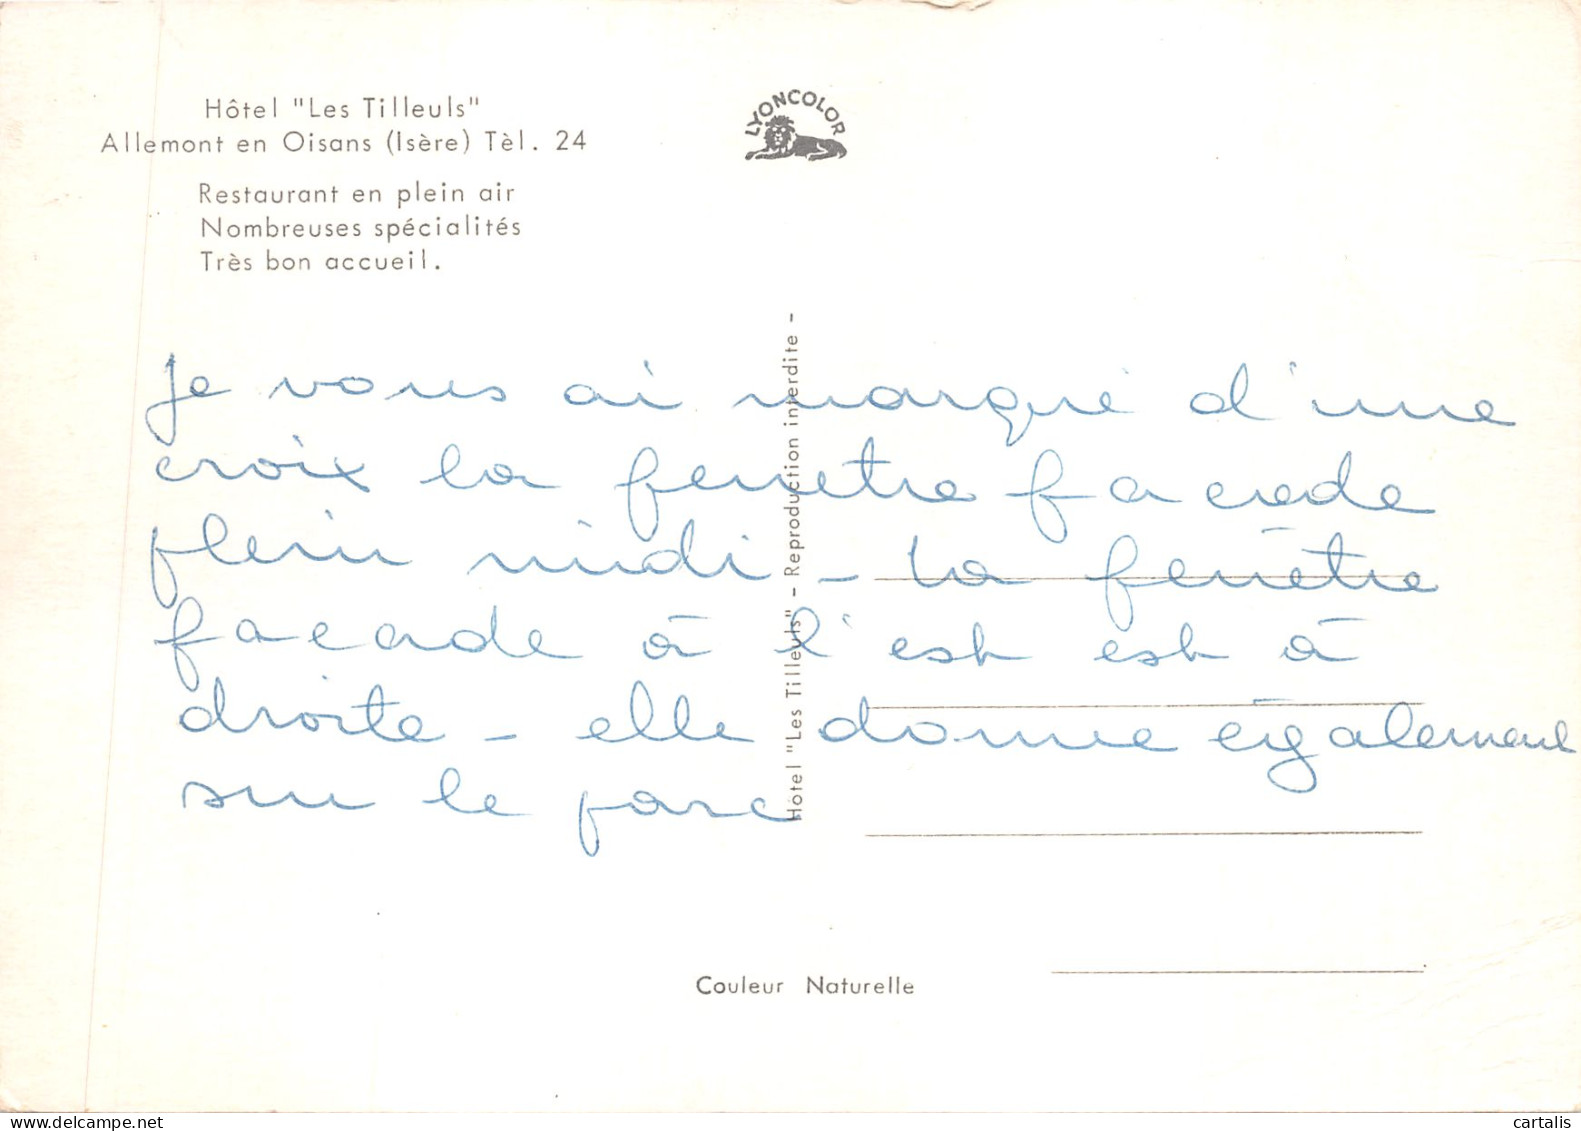 Hôtel "Les Tilleuls"
Allemont en Oisans (Isère) Tèl. 24
Restaurant en plein air
Nombreuses spécialités
Très bon accueil.
LYONCOLOR
Hôtel "Les Tilleuls" - Reproduction interdite -
Je vous ai marqué d'une
croix la fenetre facade
plein midi - La fenêtre
facade à l'est est à
droite - elle donne également
sur le parc
Couleur Naturelle
cartalis